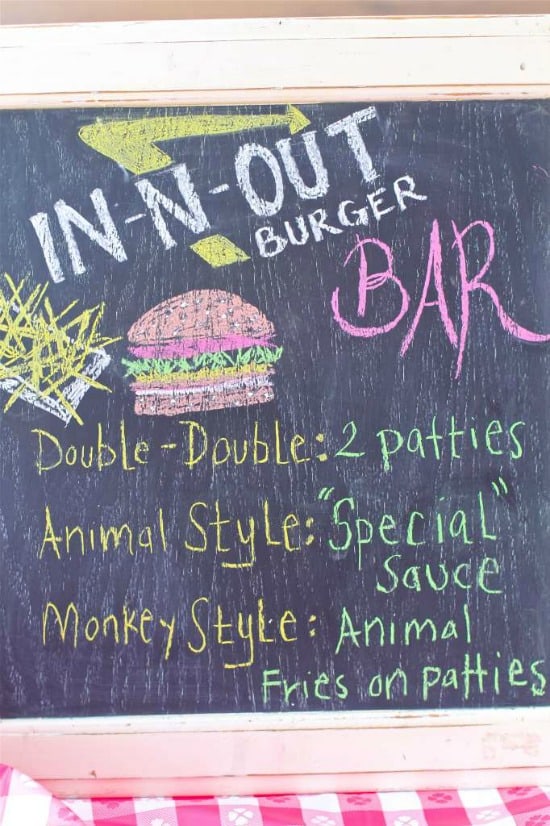 IN-N-OUT
BURGER
BAR
Double-Double: 2 patties
Animal Style: "Special"
Sauce
Monkey Style: Animal
Fries on patties